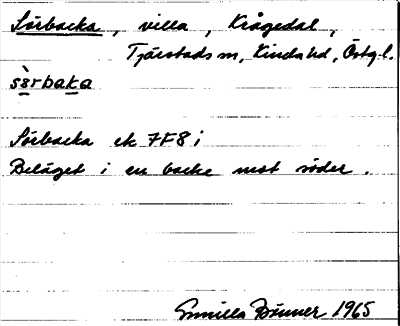 Sörbacka, villa, Krågedal,
Tjärstads sn, Kinda hd, Östgl.
sö̀rbaka
Sörbacka ek 7F8i
Beläget i en backe mot söder.
Gunilla 1965